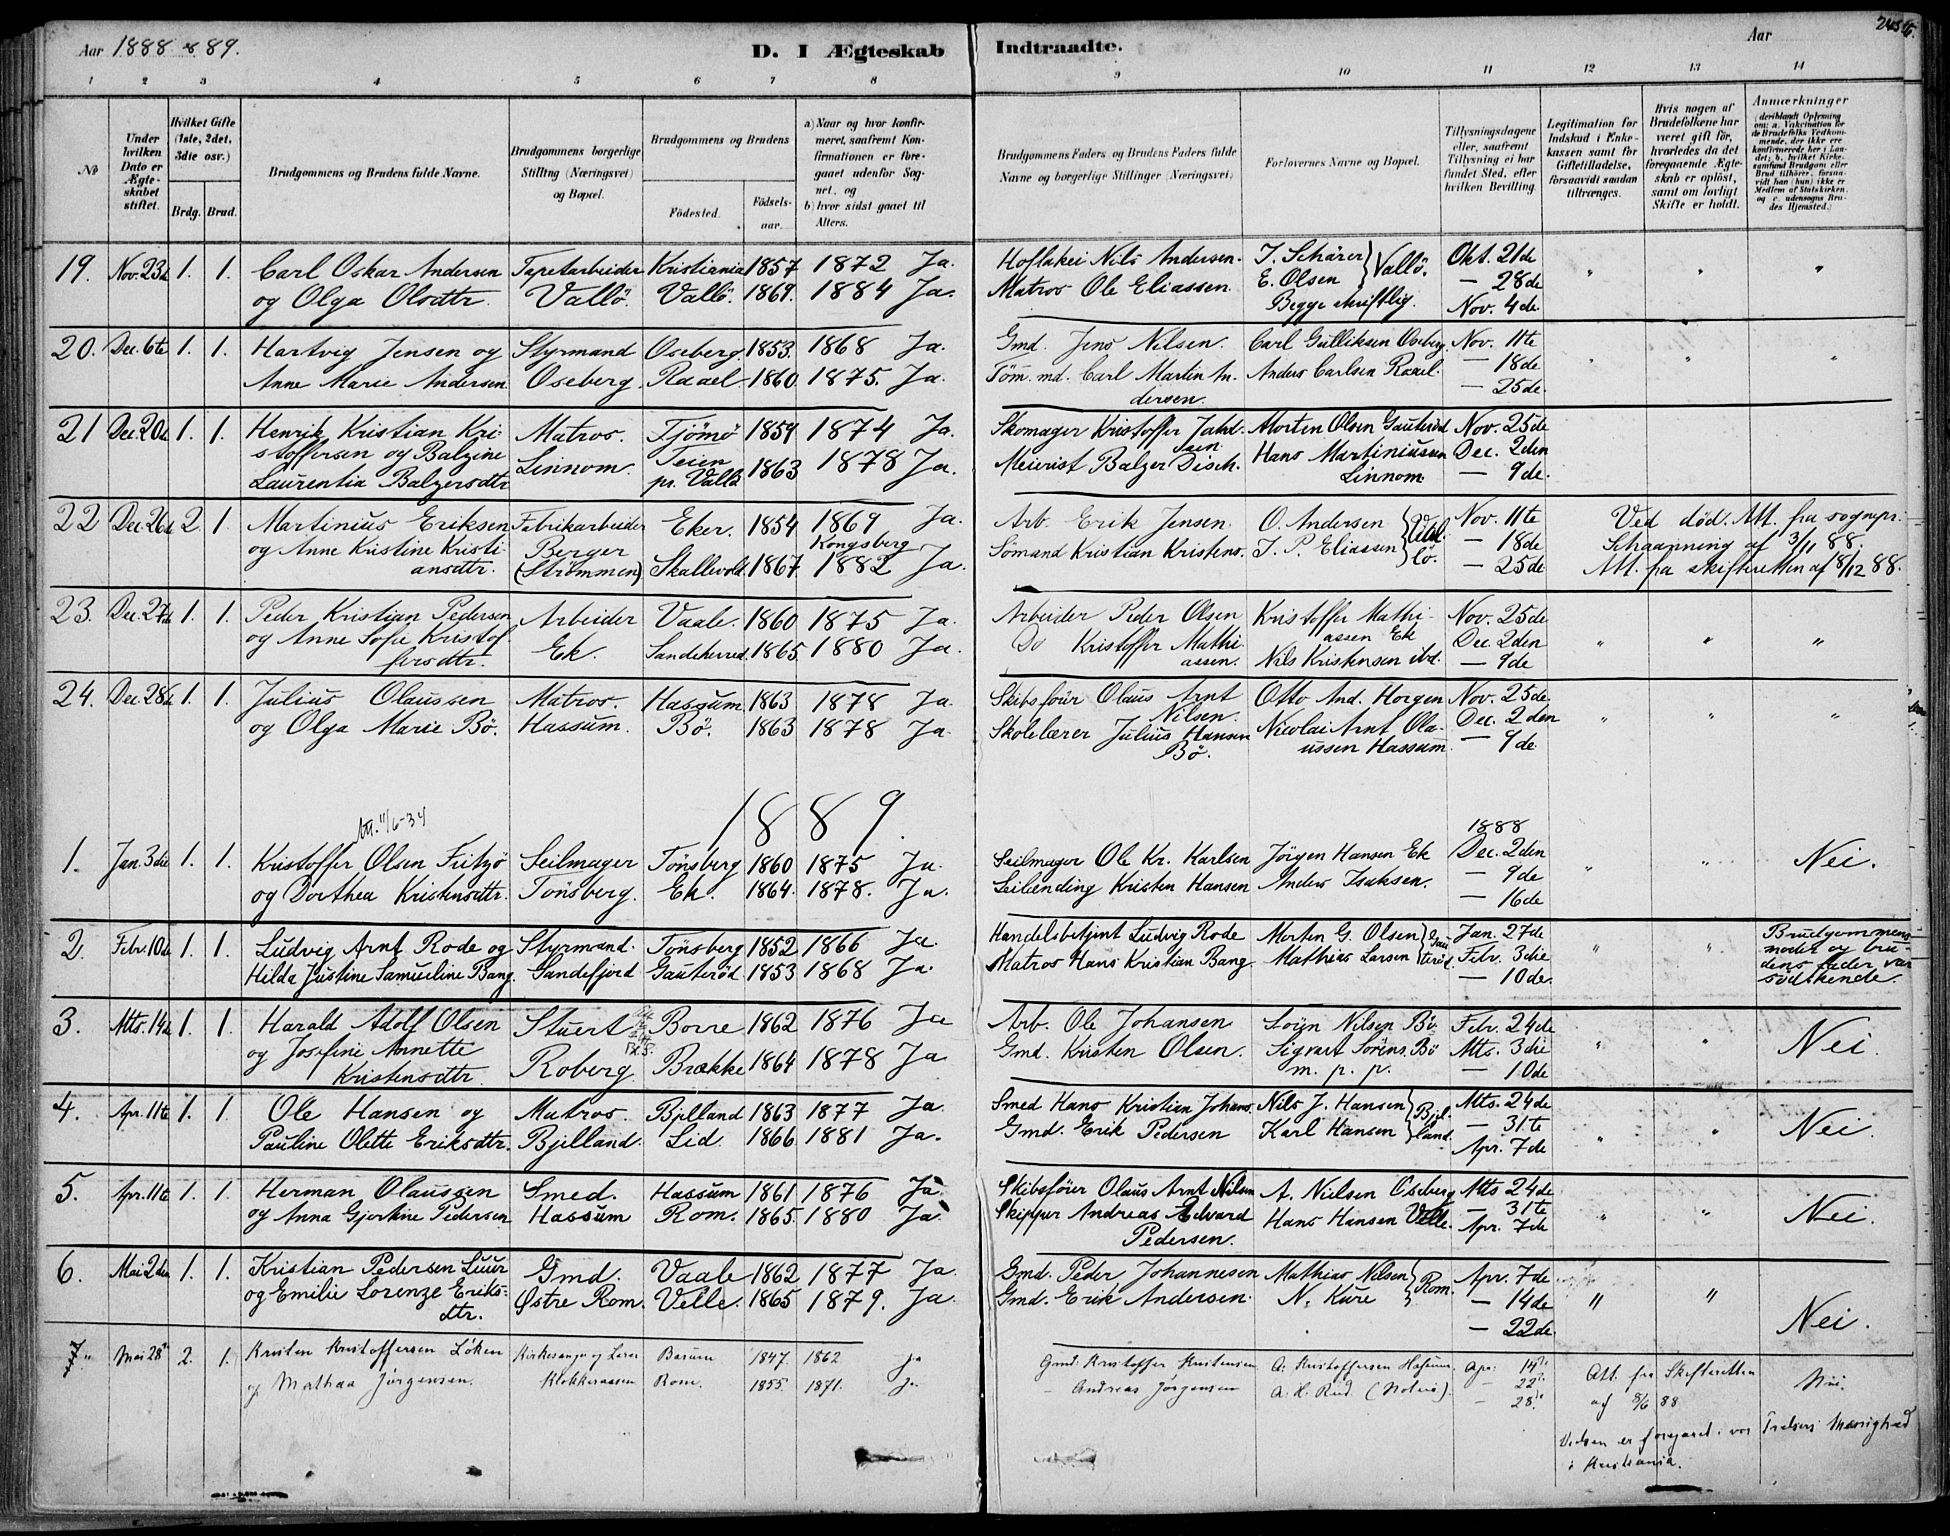 Aar 1888 & 89.
D. I Ægteskab Indtraadte.
Aar
1 2 3 4 5 6 7 8 9 10 11 12 13 14
No
Under hvilken Dato er Ægteskabet stiftet.
Hvilket Gifte (1ste, 2det, 3die osv.)
Brdg. Brud.
Brudgommens og Brudens fulde Navne.
Brudgommens borgerlige Stilling (Næringsvei) og Bopæl.
Brudgommens og Brudens
Födested. Födselsaar.
a) Naar og hvor konfirmeret, saafremt Konfirmationen er foregaaet udenfor Sognet, og
b) hvor sidst gaaet til Alters.
Brudgommens Faders og Brudens Faders fulde Navne og borgerlige Stillinger (Næringsvei)
Forlovernes Navne og Bopæl.
Tillysningsdagene eller, saafremt Tillysning ei har fundet Sted, efter hvilken Bevilling.
Legitimation for Indskud i Enkekassen samt for Giftetilladelse, forsaavidt saadan tiltrænges.
Hvis nogen af Brudefolkene har været gift för, hvorledes da det foregaaende Ægteskab er oplöst, samt om lovligt Skifte er holdt.
Anmærkninger
19. Nov. 23de 1. 1. Carl Oskar Andersen Tapetarbeider Kristiania 1857 1872 Ja. Hoflakei Nils Andersen. I. Schärer Vallö. Okt. 21de " " "
og Olga Olsdtr. Vallö. Vallö. 1869. 1884 Ja. Matros Ole Eliassen. E. Olsen — 28de
Begge skriftlig. Nov. 4de
20. Dec. 6te 1. 1. Hartvig Jensen og Styrmand Oseberg. 1853. 1868 Ja. Gmd. Jens Nilsen. Carl Gulliksen Oseberg. Nov. 11te " " "
Anne Marie Andersen Oseberg. Raael. 1860. 1875. Ja. Töm. md. Carl Martin An- Anders Carlsen Raael. — 18de
dersen. — 25de
21 Dec. 20de 1. 1. Henrik Kristian Kri- Matros. Tjömö 1859 1874 Ja. Skomager Kristoffer Jahd- Morten Olsen Gauteröd Nov. 25de
stoffersen og Balzine Linnom. Teien 1863 1878 Ja. Meierist Balzer Disch. Hans Martiniussen Dec. 2den
Laurentia Balzersdtr pr. Vallö Linnom. — 9de.
22 Dec. 26de 2. 1. Martinius Eriksen Fabrikarbeider Eker. 1854 1869 Ja. Arb. Erik Jensen. O. Andersen Val- Nov. 11te Ved död. Att. fra sognepr.
og Anne Kristine Kristi- Berger Kongsberg Sömand Kristian Kristens. I. P. Eliassen lö. — 18de Schaanning af 3/11 88.
ansdtr. (Strömmen) Skallevold. 1867. 1882 Ja. — 25de Att. fra skifteretten af 8/12 88.
23. Dec. 27de 1. 1. Peder Kristian Pedersen Arbeider Vaale. 1860. 1875 Ja. Arbeider Peder Olsen Kristoffer Mathi- Nov. 25de
og Anne Sofie Kristof- Ek. Sandeherred. 1865. 1880 Ja. Do Kristoffer Mathi- assen Ek Dec. 2den " " "
fersdtr. assen. Nils Kristensen ibd. — 9de
24. Dec. 28de 1. 1. Julius Olaussen Matros. Hassum. 1863 1878 Ja. Skibsförer Olaus Arnt Otto And. Horgen Nov. 25de.
og Olga Marie Bö. Hassum. Bö. 1863 1878 Ja. Nilsen. Nicolai Arnt Ola- Dec. 2den " " "
Skolelærer Julius Hansen Bö. ussen Hassum. — 9de
1889.
Att. 11/6-34
1888
1. Jan. 3die 1. 1. Kristoffer Olsen Fritzö Seilmager Tönsberg 1860 1875 Ja. Seilmager Ole Kr. Karlsen Jörgen Hansen Ek Dec. 2den " " Nei.
og Dorthea Kristensdtr. Tönsberg. Ek. 1864. 1878. Ja. Kristen Hansen Anders Isaksen. — 9de
— 16de
2. Febr. 10de 1. 1. Ludvig Arnt Rode og Styrmand. Tönsberg 1852 1866 Ja. Handelsbetjent Ludvig Rode Morten G. Olsen Gau- Jan. 27de " " Brudgommens
Hilda Justine Samueline Bang. Sandefjord Gauteröd 1853 1868 Ja. Matros Hans Kristian Bang Mathias Larsen teröd. Febr. 3die moder og bru-
— 10de. dens fader var
södskende.
3. Mts. 14de 1. 1. Harald Adolf Olsen Stuert Borre 1862 1876 Ja Arb. Ole Johansen Sören Nilsen Bö Febr. 24de
og Josefine Annette Roberg. Brække 1864 1878 Ja Gmd. Kristen Olsen. Sigvart Sörens. Bö Mts. 3die " " Nei.
Kristensdtr. m. p. p. — 10de
4. Apr. 11te 1. 1. Ole Hansen og Matros. Bjelland 1863 1877 Ja Smed Hans Kristian Johans. Nils J. Hansen Bjel- Mts. 24de
Pauline Olette Eriksdtr. Bjelland. Lid. 1866. 1881 Ja. Gmd. Erik Pedersen Karl Hansen land. — 31te " " Nei.
Apr. 7de
5. Apr. 11te 1. 1. Herman Olaussen Smed. Hassum 1861 1876 Ja Skibsförer Olaus Arnt Nilsen A. Nielsen Oseberg Mts 24de
og Anna Gjertine Pedersen Hassum Rom. 1865. 1880 Ja. Skipper Andreas Edvard Hans Hansen Velle. — 31te " " Nei.
Pedersen. Apr. 7de
6. Mai 2den 1. 1. Kristian Pedersen Luur Gmd. Vaale 1862 1877 Ja. Gmd. Peder Johannesen Mathias Nilsen Rom. Apr. 7de
og Emilie Lorenze Eriks- Östre Rom. Velle. 1865 1879. Ja. Gmd. Erik Andersen. N. Kure — 14de " " Nei.
dtr. — 22de
7. Mai 28de 2. 1. Kristen Kristoffersen Löken Kirkesanger og Lærer Bærum 1847. 1862 ja Gmd. Kristoffer Kristensen A. Kristoffersen Hassum. Apr. 14de Att. fra Skifteretten Nei.
og Mathea Jörgensen. Klokkeraasen Rom. 1855. 1871. ja — Andreas Jörgensen A. H. Rud. — 22de af 8/6 88
— 28de
Vielsen er foregaaet i vor Frelsers Menighed
i Kristiania.